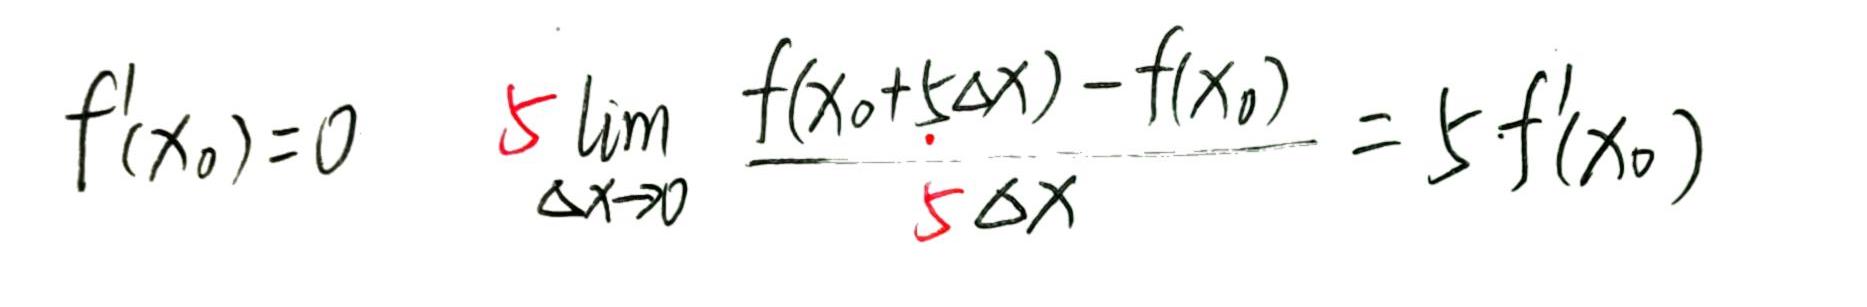 f'(x₀)=0 5 lim Δx→0 f(x₀+5Δx)-f(x₀) / 5Δx = 5f'(x₀)